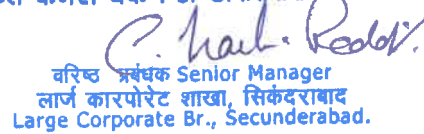 C. Hari. Reddy.
वरिष्ठ प्रबंधक Senior Manager
लार्ज कारपोरेट शाखा, सिकंदराबाद
Large Corporate Br., Secunderabad.